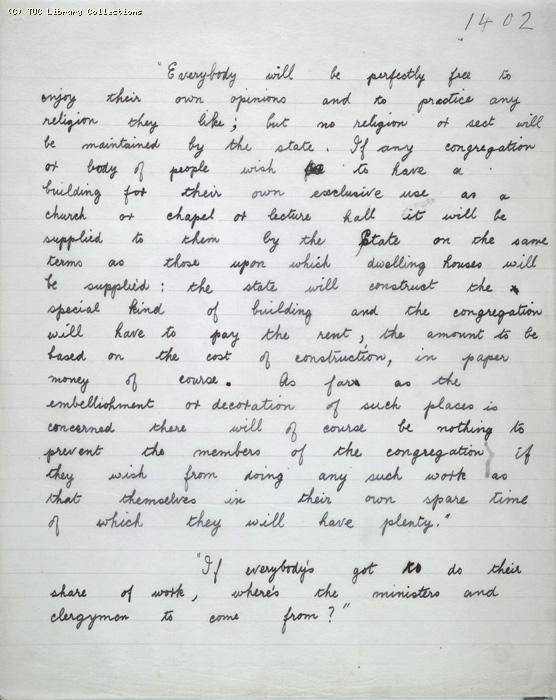 (C) TUC Library Collections
1402
"Everybody will be perfectly free to
enjoy their own opinions and to practice any
religion they like; but no religion or sect will
be maintained by the state. If any congregation
or body of people wish to have a
building for their own exclusive use as a
church or chapel or lecture hall it will be
supplied to them by the State on the same
terms as those upon which dwelling houses will
be supplied: the state will construct the
special kind of building and the congregation
will have to pay the rent, the amount to be
based on the cost of construction, in paper
money of course. As far as the
embellishment or decoration of such places is
concerned there will of course be nothing to
prevent the members of the congregation if
they wish from doing any such work as
that themselves in their own spare time
of which they will have plenty."
"If everybody's got to do their
share of work, where's the ministers and
clergymen to come from?"